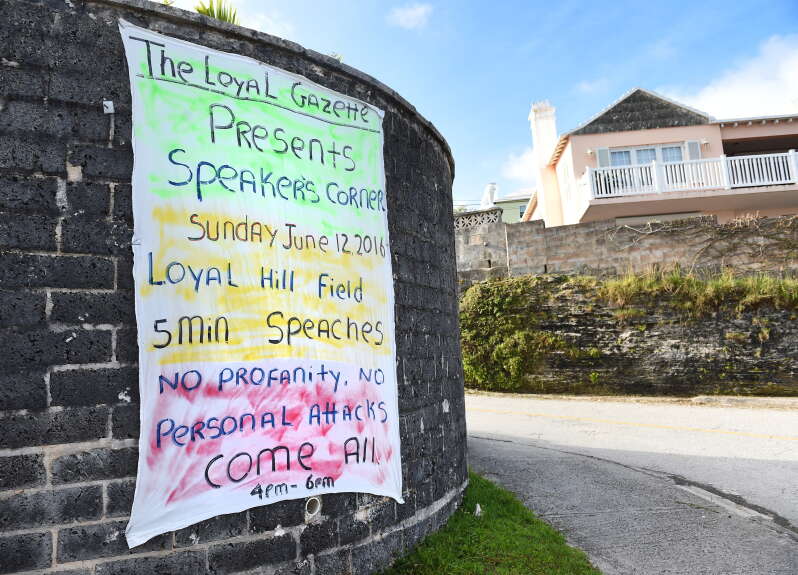 The Loyal Gazette
Presents
Speaker's Corner
Sunday June 12, 2016
Loyal Hill Field
5 Min Speaches
No Profanity, No
Personal Attacks
Come All.
4pm - 6pm